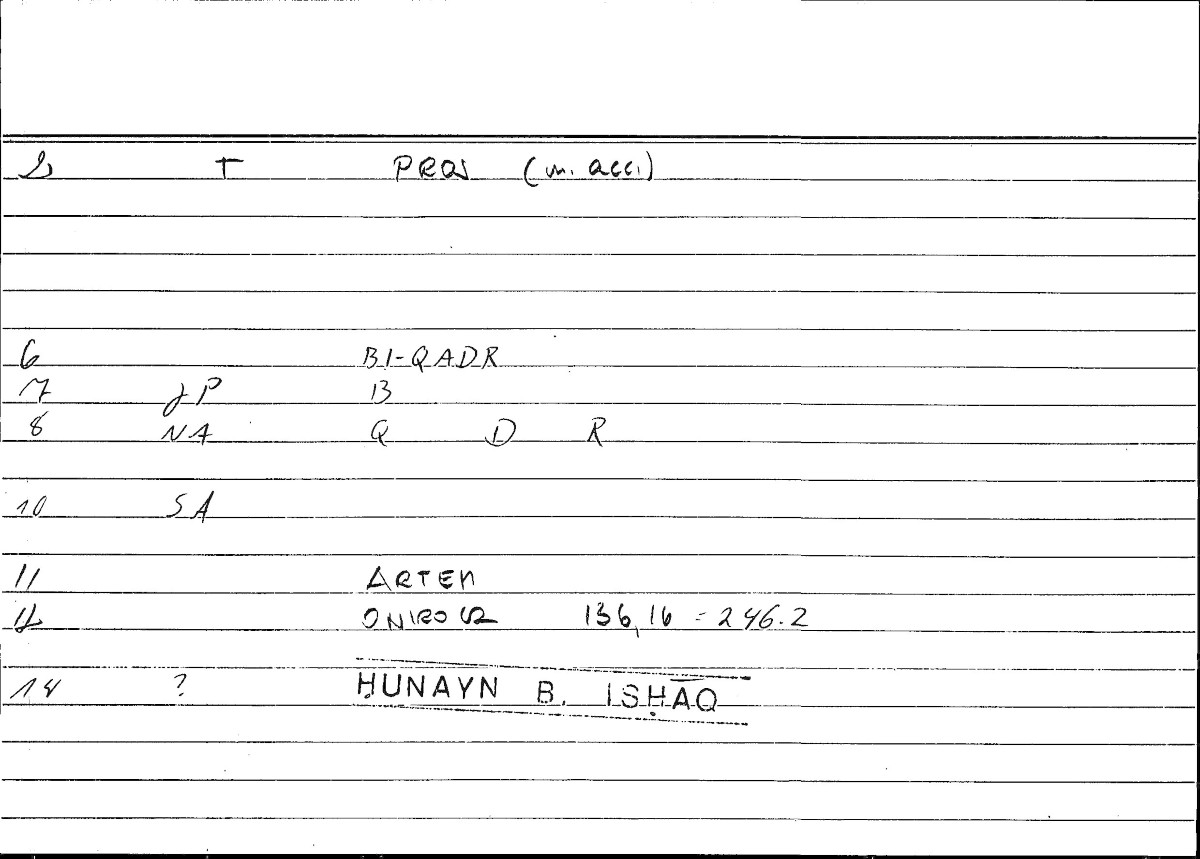 T PROS (m. acc.)
6 BI-QADR
7 JP B
8 NA Q D R
10 SA
11 ARTEM
12 ONIROCR 136,16 = 246.2
14 ? ḤUNAYN B. ISḤĀQ